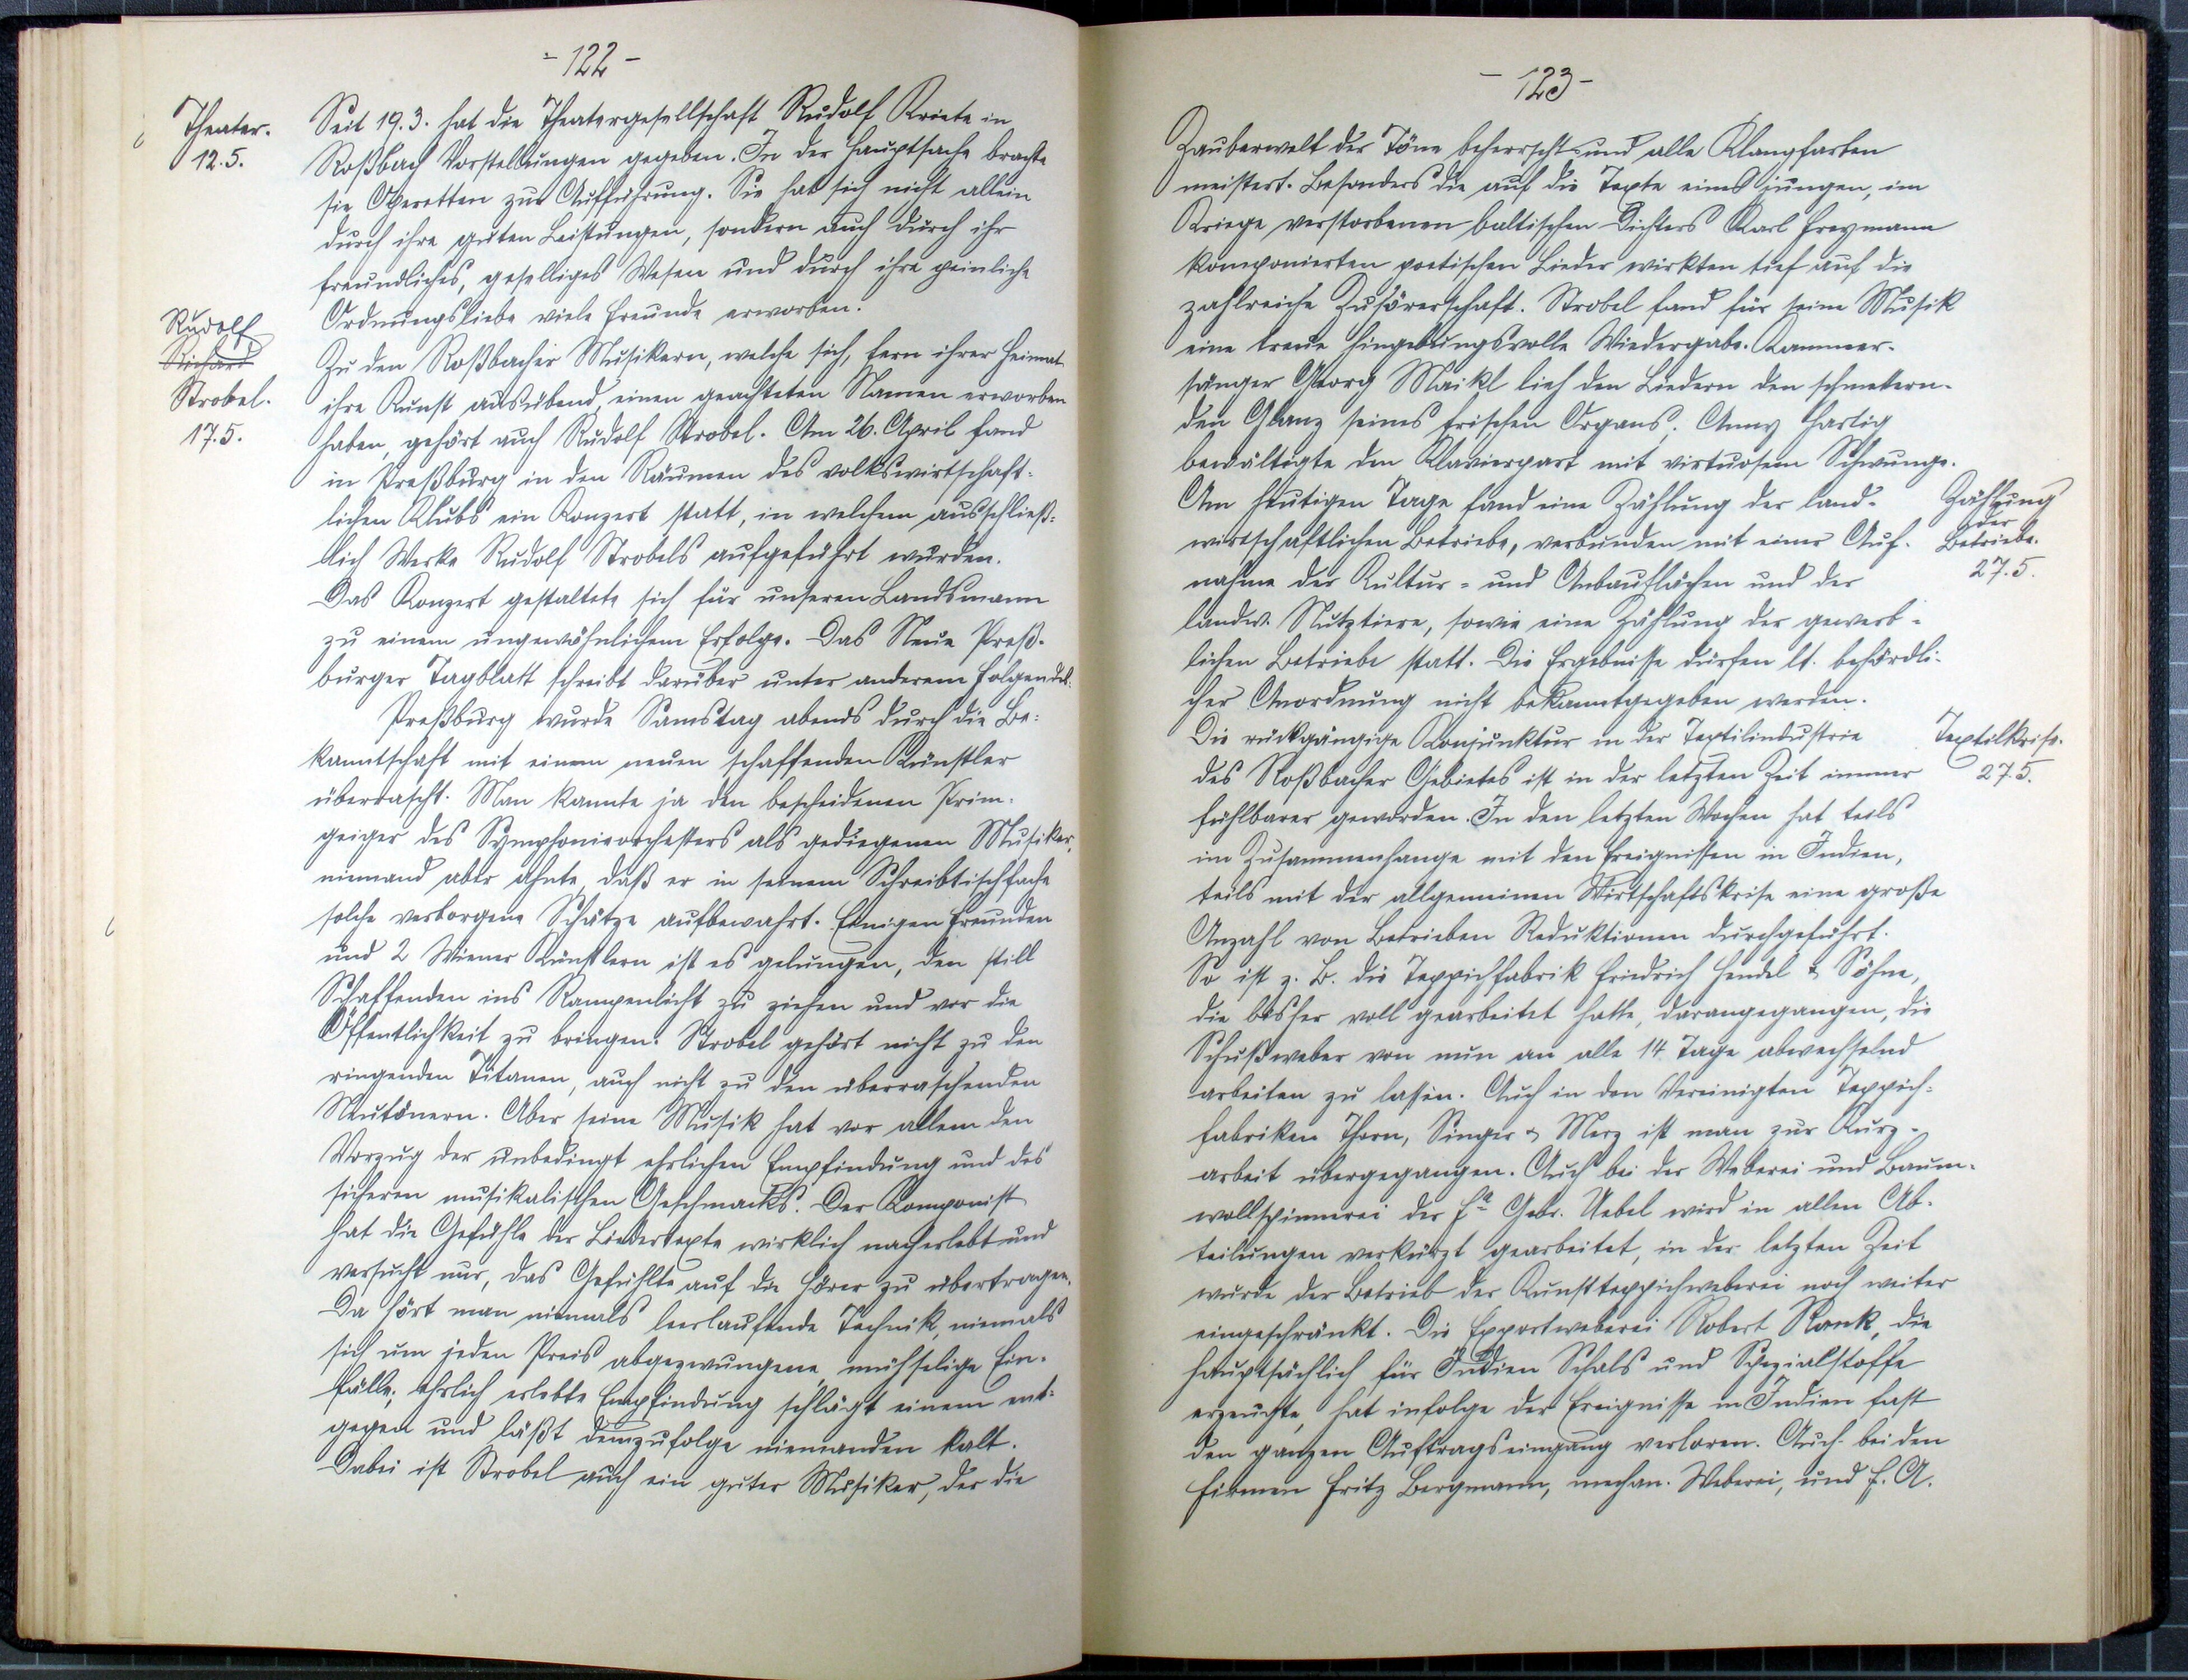 - 122 -
Theater.
12.5.
Seit 19.3. hat die Theatergesellschaft Rudolf Kriete in
Roßbach Vorstellungen gegeben. In der Hauptsache brachte
sie Operetten zur Aufführung. Sie hat sich nicht allein
durch ihre guten Leistungen, sondern auch durch ihr
freundliches, geselliges Wesen und durch ihre peinliche
Ordnungsliebe viele Freunde erworben.
Rudolf
Richard
Strobel.
17.5.
Zu den Roßbacher Musikern, welche sich, fern ihrer Heimat
ihre Kunst ausübend, einen geachteten Namen erworben
haben, gehört auch Rudolf Strobel. Am 26. April fand
in Preßburg in den Räumen des volkswirtschaft-
lichen Klubs ein Konzert statt, in welchem ausschließ-
lich Werke Rudolf Strobels aufgeführt wurden.
Das Konzert gestaltete sich für unseren Landsmann
zu einem ungewöhnlichem Erfolge. Das Neue Preß-
burger Tagblatt schreibt darüber unter anderem Folgendes:
Preßburg wurde Samstag abends durch die Be-
kanntschaft mit einem neuen schaffenden Künstler
überrascht. Man kannte ja den bescheidenen Prim-
geiger des Symphonieorchesters als gediegenen Musiker,
niemand aber ahnte, daß er in seinem Schreibtischfache
solche verborgene Schätze aufbewahrt. Einigen Freunden
und 2 Wiener Künstlern ist es gelungen, den still
Schaffenden ins Rampenlicht zu ziehen und vor die
Öffentlichkeit zu bringen. Strobel gehört nicht zu den
ringenden Titanen, auch nicht zu den überraschenden
Neutönern. Aber seine Musik hat vor allem den
Vorzug der unbedingt ehrlichen Empfindung und des
sicheren musikalischen Geschmacks. Der Komponist
hat die Gefühle der Liedertexte wirklich nacherlebt und
versucht nur, das Gefühlte auf die Hörer zu übertragen.
Da hört man niemals leerlaufende Technik, niemals
sich um jeden Preis abgezwungene, mühselige Ein-
fälle; ehrlich erlebte Empfindung schlägt einem ent-
gegen und läßt demzufolge niemanden kalt.
Dabei ist Strobel auch ein guter Musiker, der die
- 123 -
Zauberwelt der Töne beherrscht und alle Klangfarben
meistert. Besonders die auf die Texte eines jungen, im
Kriege verstorbenen baltischen Dichters Karl Freymann
komponierten poetischen Lieder wirkten tief auf die
zahlreiche Zuhörerschaft. Strobel fand für seine Musik
eine treue hingebungsvolle Wiedergabe. Kammer-
sänger Georg Maikl lieh den Liedern den schmettern-
den Glanz seines frischen Organs. Anny Hartig
bewältigte den Klavierpart mit virtuosem Schwunge.
Am heutigen Tage fand eine Zählung der land-
wirtschaftlichen Betriebe, verbunden mit einer Auf-
nahme der Kultur- und Anbauflächen und der
landw. Nutztiere, sowie eine Zählung der gewerb-
lichen Betriebe statt. Die Ergebnisse dürfen lt. behördli-
cher Anordnung nicht bekanntgegeben werden.
Zählung
der
Betriebe.
27.5.
Die rückgängige Konjunktur in der Textilindustrie
des Roßbacher Gebietes ist in der letzten Zeit immer
fühlbarer geworden. In den letzten Wochen hat teils
im Zusammenhange mit den Ereignissen in Indien,
teils mit der allgemeinen Wirtschaftskrise eine große
Anzahl von Betrieben Reduktionen durchgeführt.
So ist z. B. die Teppichfabrik Friedrich Hendel & Söhne,
die bisher voll gearbeitet hatte, darangegangen, die
Schußweber von nun an alle 14 Tage abwechselnd
arbeiten zu lassen. Auch in den Vereinigten Teppich-
fabriken Thorn, Singer & Merz ist man zur Kurz-
arbeit übergegangen. Auch bei der Weberei und Baum-
wollspinnerei der Fa Gebr. Uebel wird in allen Ab-
teilungen verkürzt gearbeitet, in der letzten Zeit
wurde der Betrieb der Kunstteppichweberei noch weiter
eingeschränkt. Die Exportweberei Robert Rank, die
hauptsächlich für Indien Schals und Spezialstoffe
erzeugte, hat infolge der Ereignisse in Indien fast
den ganzen Auftragseingang verloren. Auch bei den
Firmen Fritz Bergmann, mechan. Weberei, und E. A.
Textilkrise.
27.5.